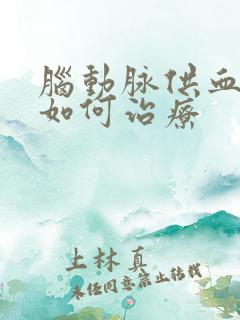 腦動脉供血
如何治療
上林真
未经同意禁止转载